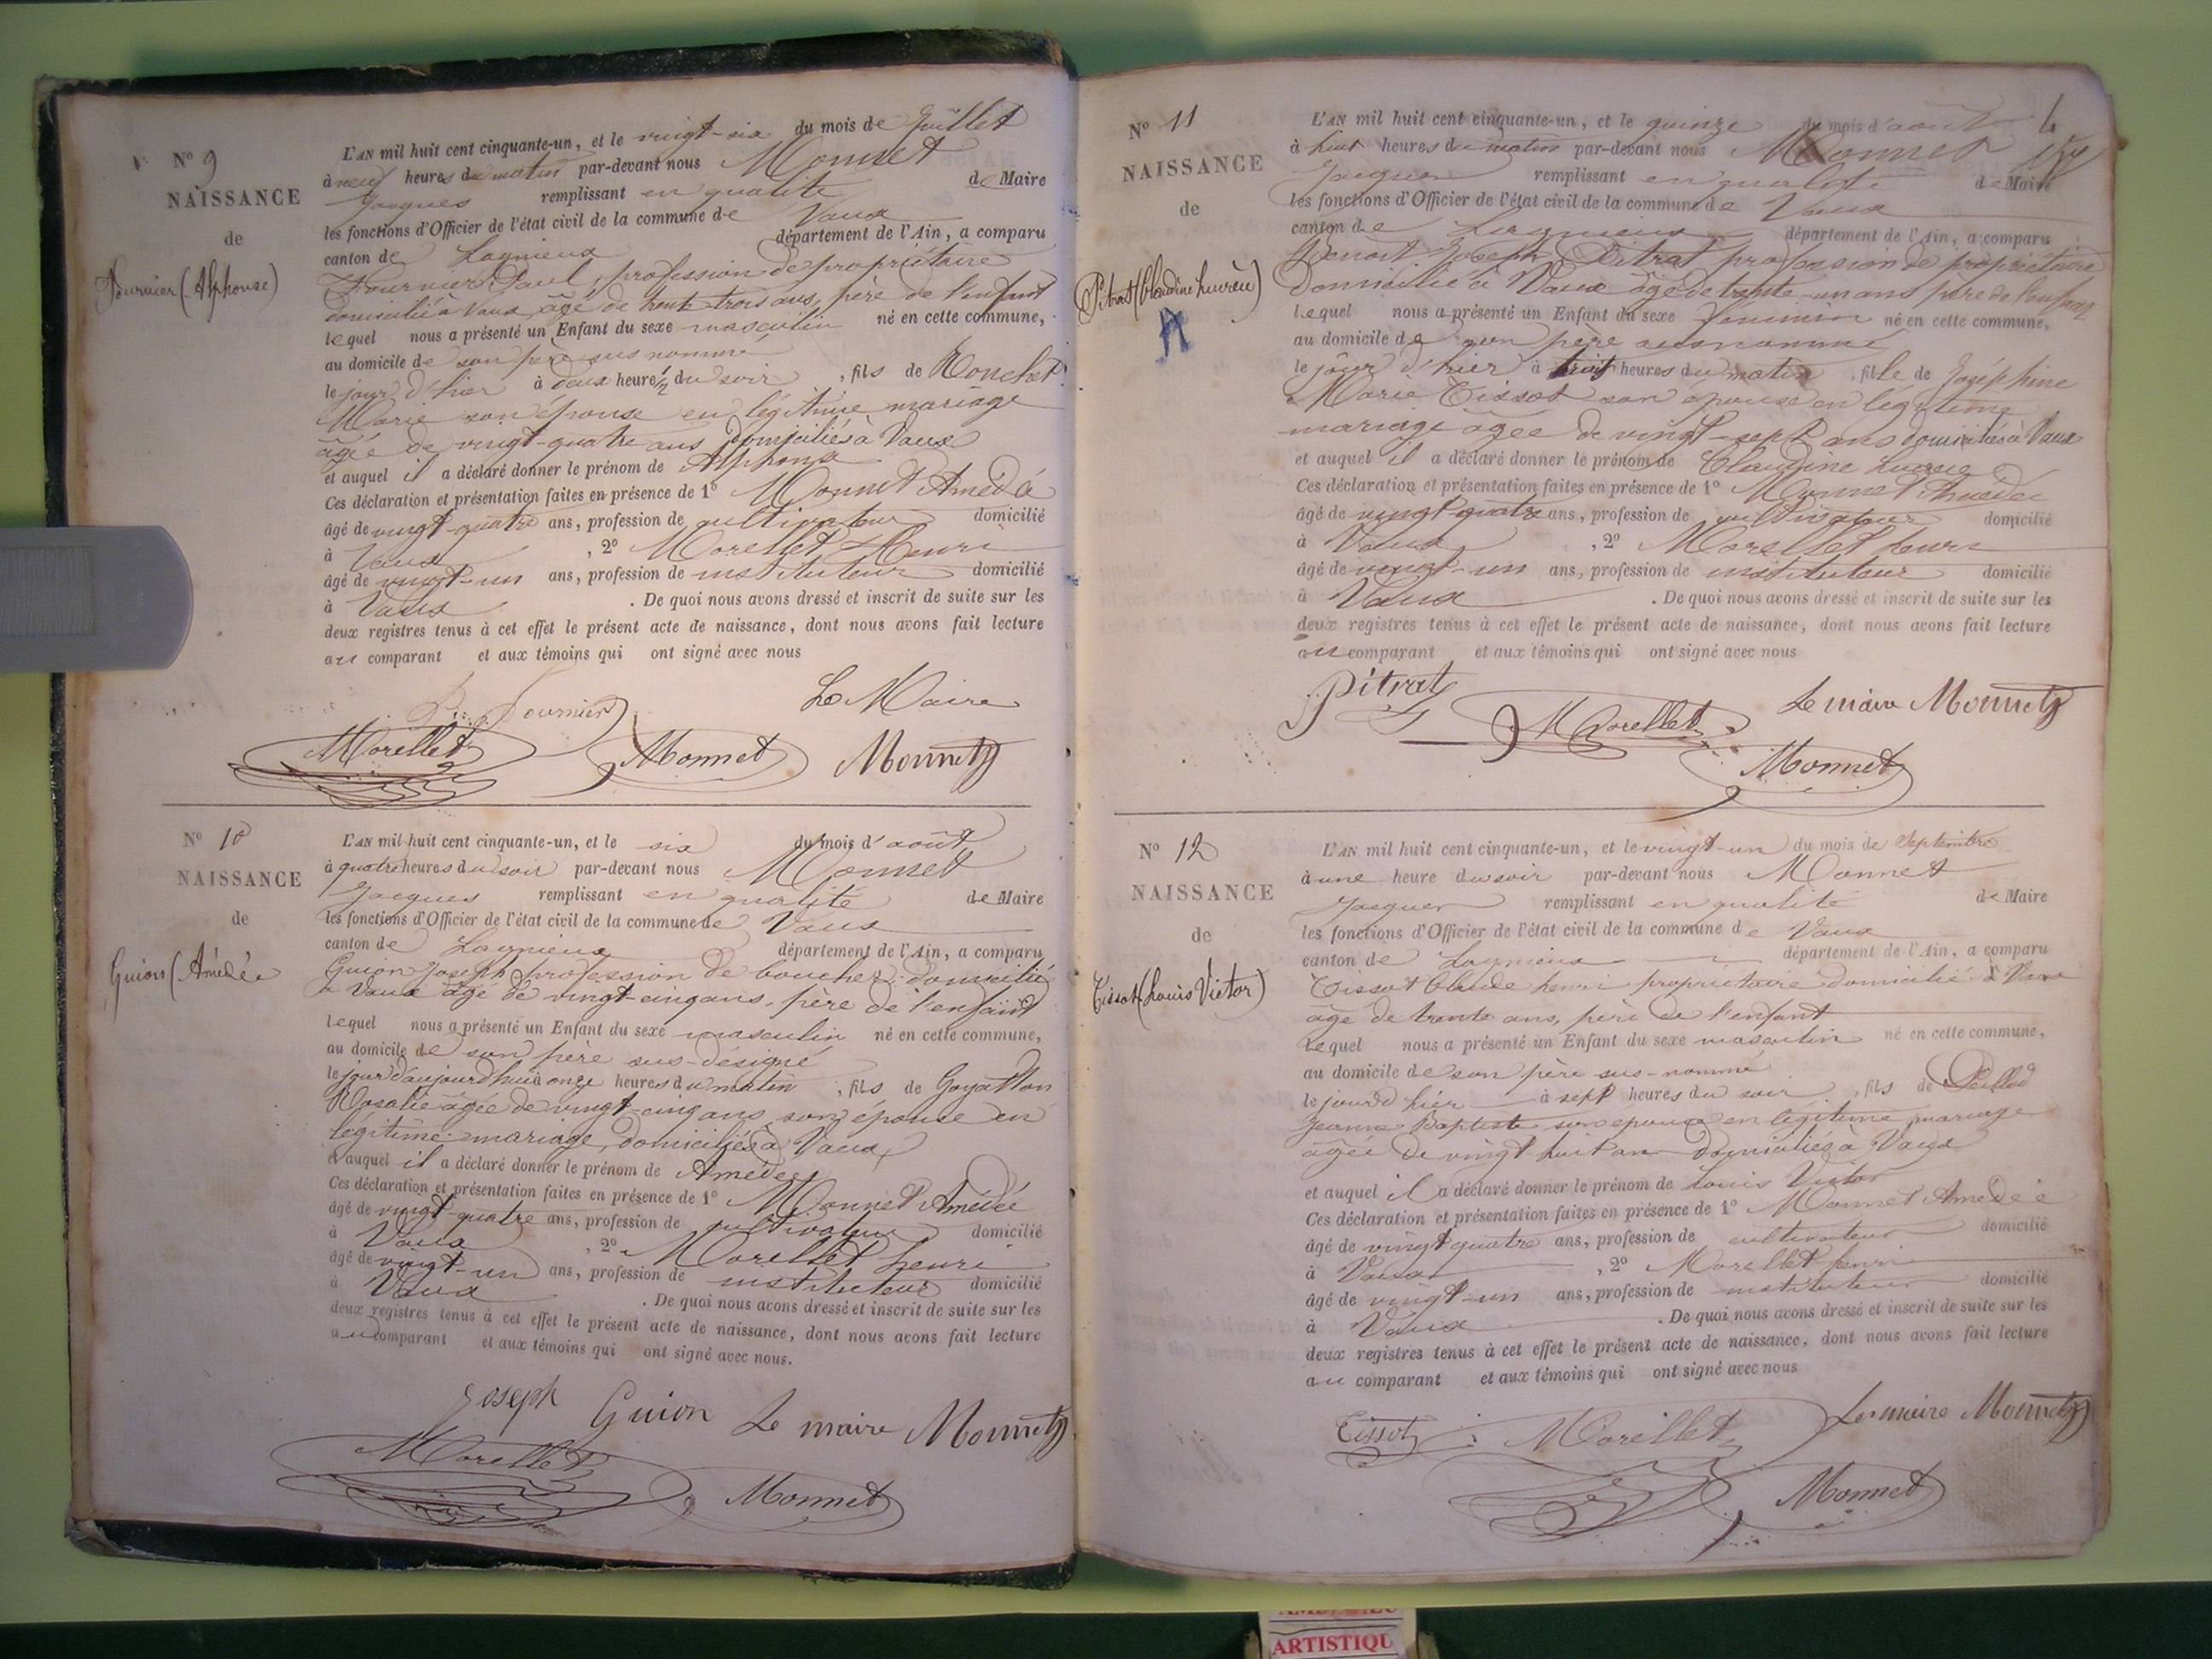 N° 9
NAISSANCE
de
Fournier (Alphonse)
L'AN mil huit cent cinquante-un, et le vingt-six du mois de Juillet
à neuf heures du matin par-devant nous Monnet
Jacques remplissant en qualité de Maire
les fonctions d'Officier de l'état civil de la commune de Vaux
canton de Lagnieux département de l'Ain, a comparu
Fournier Paul, profession de propriétaire
domicilié à Vaux, âgé de trente trois ans, père de l'enfant
lequel nous a présenté un Enfant du sexe masculin né en cette commune,
au domicile de son père sus nommé
le jour d'hier à deux heures 1/2 du soir, fils de Ronchet
Marie son épouse en légitime mariage
âgée de vingt-quatre ans domiciliés à Vaux
et auquel il a déclaré donner le prénom de Alphonse
Ces déclaration et présentation faites en présence de 1° Monnet Amédé
âgé de vingt-quatre ans, profession de cultivateur domicilié
à Vaux, 2° Morellet Henri
âgé de vingt-un ans, profession de instituteur domicilié
à Vaux. De quoi nous avons dressé et inscrit de suite sur les
deux registres tenus à cet effet le présent acte de naissance, dont nous avons fait lecture
au comparant et aux témoins qui ont signé avec nous
Fournier Le Maire
Morellet Monnet Monnet
N° 10
NAISSANCE
de
Guion (Amédée
L'AN mil huit cent cinquante-un, et le six du mois d'août
à quatre heures du soir par-devant nous Monnet
Jacques remplissant en qualité de Maire
les fonctions d'Officier de l'état civil de la commune de Vaux
canton de Lagnieux département de l'Ain, a comparu
Guion Joseph profession de boucher domicilié
à Vaux âgé de vingt-cinq ans, père de l'enfant
lequel nous a présenté un Enfant du sexe masculin né en cette commune,
au domicile de son père sus-désigné
le jour d'aujourd'hui à onze heures du matin, fils de Goyatton
Rosalie âgée de vingt-cinq ans son épouse en
légitime mariage, domiciliés à Vaux
et auquel il a déclaré donner le prénom de Amédée
Ces déclaration et présentation faites en présence de 1° Monnet Amédée
âgé de vingt-quatre ans, profession de cultivateur domicilié
à Vaux, 2° Morellet henri
âgé de vingt-un ans, profession de instituteur domicilié
à Vaux. De quoi nous avons dressé et inscrit de suite sur les
deux registres tenus à cet effet le présent acte de naissance, dont nous avons fait lecture
au comparant et aux témoins qui ont signé avec nous.
Joseph Guion Le maire Monnet
Morellet Monnet
4
N° 11
NAISSANCE
de
Pitrat (Claudine Lucrèce)
A
L'AN mil huit cent cinquante-un, et le quinze du mois d'août
à huit heures du matin par-devant nous Monnet
Jacques remplissant en qualité de Maire
les fonctions d'Officier de l'état civil de la commune de Vaux
canton de Lagnieux département de l'Ain, a comparu
Benoit Joseph Pitrat profession de propriétaire
domicilié à Vaux âgé de trente-un ans père de l'enfant
lequel nous a présenté un Enfant du sexe féminin né en cette commune,
au domicile de son père susnommé
le jour d'hier à trois heures du matin, fille de Joséphine
Marie Tissot son épouse en légitime
mariage âgée de vingt-sept ans domiciliés à Vaux
et auquel il a déclaré donner le prénom de Claudine Lucrèce
Ces déclaration et présentation faites en présence de 1° Monnet Amédée
âgé de vingt quatre ans, profession de cultivateur domicilié
à Vaux, 2° Morellet henri
âgé de vingt-un ans, profession de instituteur domicilié
à Vaux. De quoi nous avons dressé et inscrit de suite sur les
deux registres tenus à cet effet le présent acte de naissance, dont nous avons fait lecture
au comparant et aux témoins qui ont signé avec nous
Pitrat Morellet Le maire Monnet
Monnet
N° 12
NAISSANCE
de
Tissot (Louis Victor)
L'AN mil huit cent cinquante-un, et le vingt-un du mois de Septembre
à une heure du soir par-devant nous Monnet
Jacques remplissant en qualité de Maire
les fonctions d'Officier de l'état civil de la commune de Vaux
canton de Lagnieux département de l'Ain, a comparu
Tissot Claude henri propriétaire domicilié à Vaux
âgé de trente ans, père de l'enfant
Lequel nous a présenté un Enfant du sexe masculin né en cette commune,
au domicile de son père sus-nommé
le jour d'hier à sept heures du soir, fils de Peillod
Jeanne Baptiste son épouse en légitime mariage
âgée de vingt huit ans domiciliés à Vaux
et auquel il a déclaré donner le prénom de Louis Victor
Ces déclaration et présentation faites en présence de 1° Monnet Amédée
âgé de vingt quatre ans, profession de cultivateur domicilié
à Vaux, 2° Morellet henri
âgé de vingt-un ans, profession de instituteur domicilié
à Vaux. De quoi nous avons dressé et inscrit de suite sur les
deux registres tenus à cet effet le présent acte de naissance, dont nous avons fait lecture
au comparant et aux témoins qui ont signé avec nous
Tissot Morellet Le maire Monnet
Monnet
ARTISTIQU